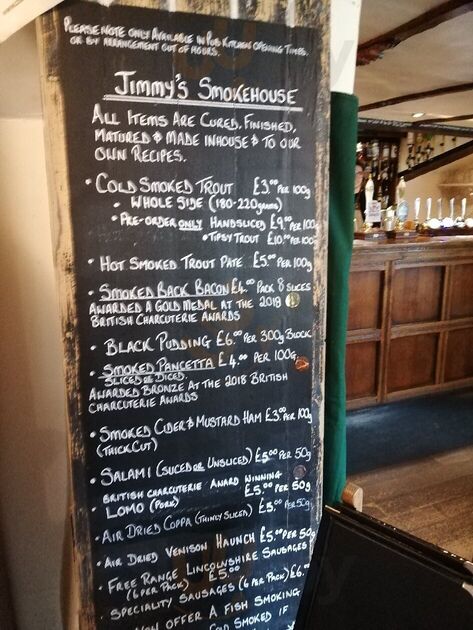 PLEASE NOTE ONLY AVAILABLE IN PUB KITCHEN OPENING TIMES
OR BY ARRANGEMENT OUT OF HOURS.
JIMMY'S SMOKEHOUSE
ALL ITEMS ARE CURED, FINISHED,
MATURED & MADE INHOUSE & TO OUR
OWN RECIPES.
• COLD SMOKED TROUT £3.00 PER 100g
• WHOLE SIDE (180-220grams)
• PRE-ORDER ONLY HANDSLICED £9.00 PER 100g
• TIPSY TROUT £10.00 PER 100g
• HOT SMOKED TROUT PATE £5.00 PER 100g
• SMOKED BACK BACON £4.00 PACK 8 SLICES
AWARDED A GOLD MEDAL AT THE 2018
BRITISH CHARCUTERIE AWARDS
• BLACK PUDDING £6.00 PER 300g BLOCK
• SMOKED PANCETTA £4.00 PER 100g
SLICED OR DICED
AWARDED BRONZE AT THE 2018 BRITISH
CHARCUTERIE AWARDS
• SMOKED CIDER & MUSTARD HAM £3.00 PER 100g
(THICK CUT)
• SALAMI (SLICED OR UNSLICED) £5.00 PER 50g
BRITISH CHARCUTERIE AWARD WINNING
• LOMO (PORK) £5.00 PER 50g
• AIR DRIED COPPA (THINLY SLICED) £5.00 PER 50g
• AIR DRIED VENISON HAUNCH £5.00 PER 50g
• FREE RANGE LINCOLNSHIRE SAUSAGES
(6 PER PACK) £5.00
• SPECIALITY SAUSAGES (6 PER PACK) £6.00
NOW OFFER A FISH SMOKING
COLD SMOKED IF